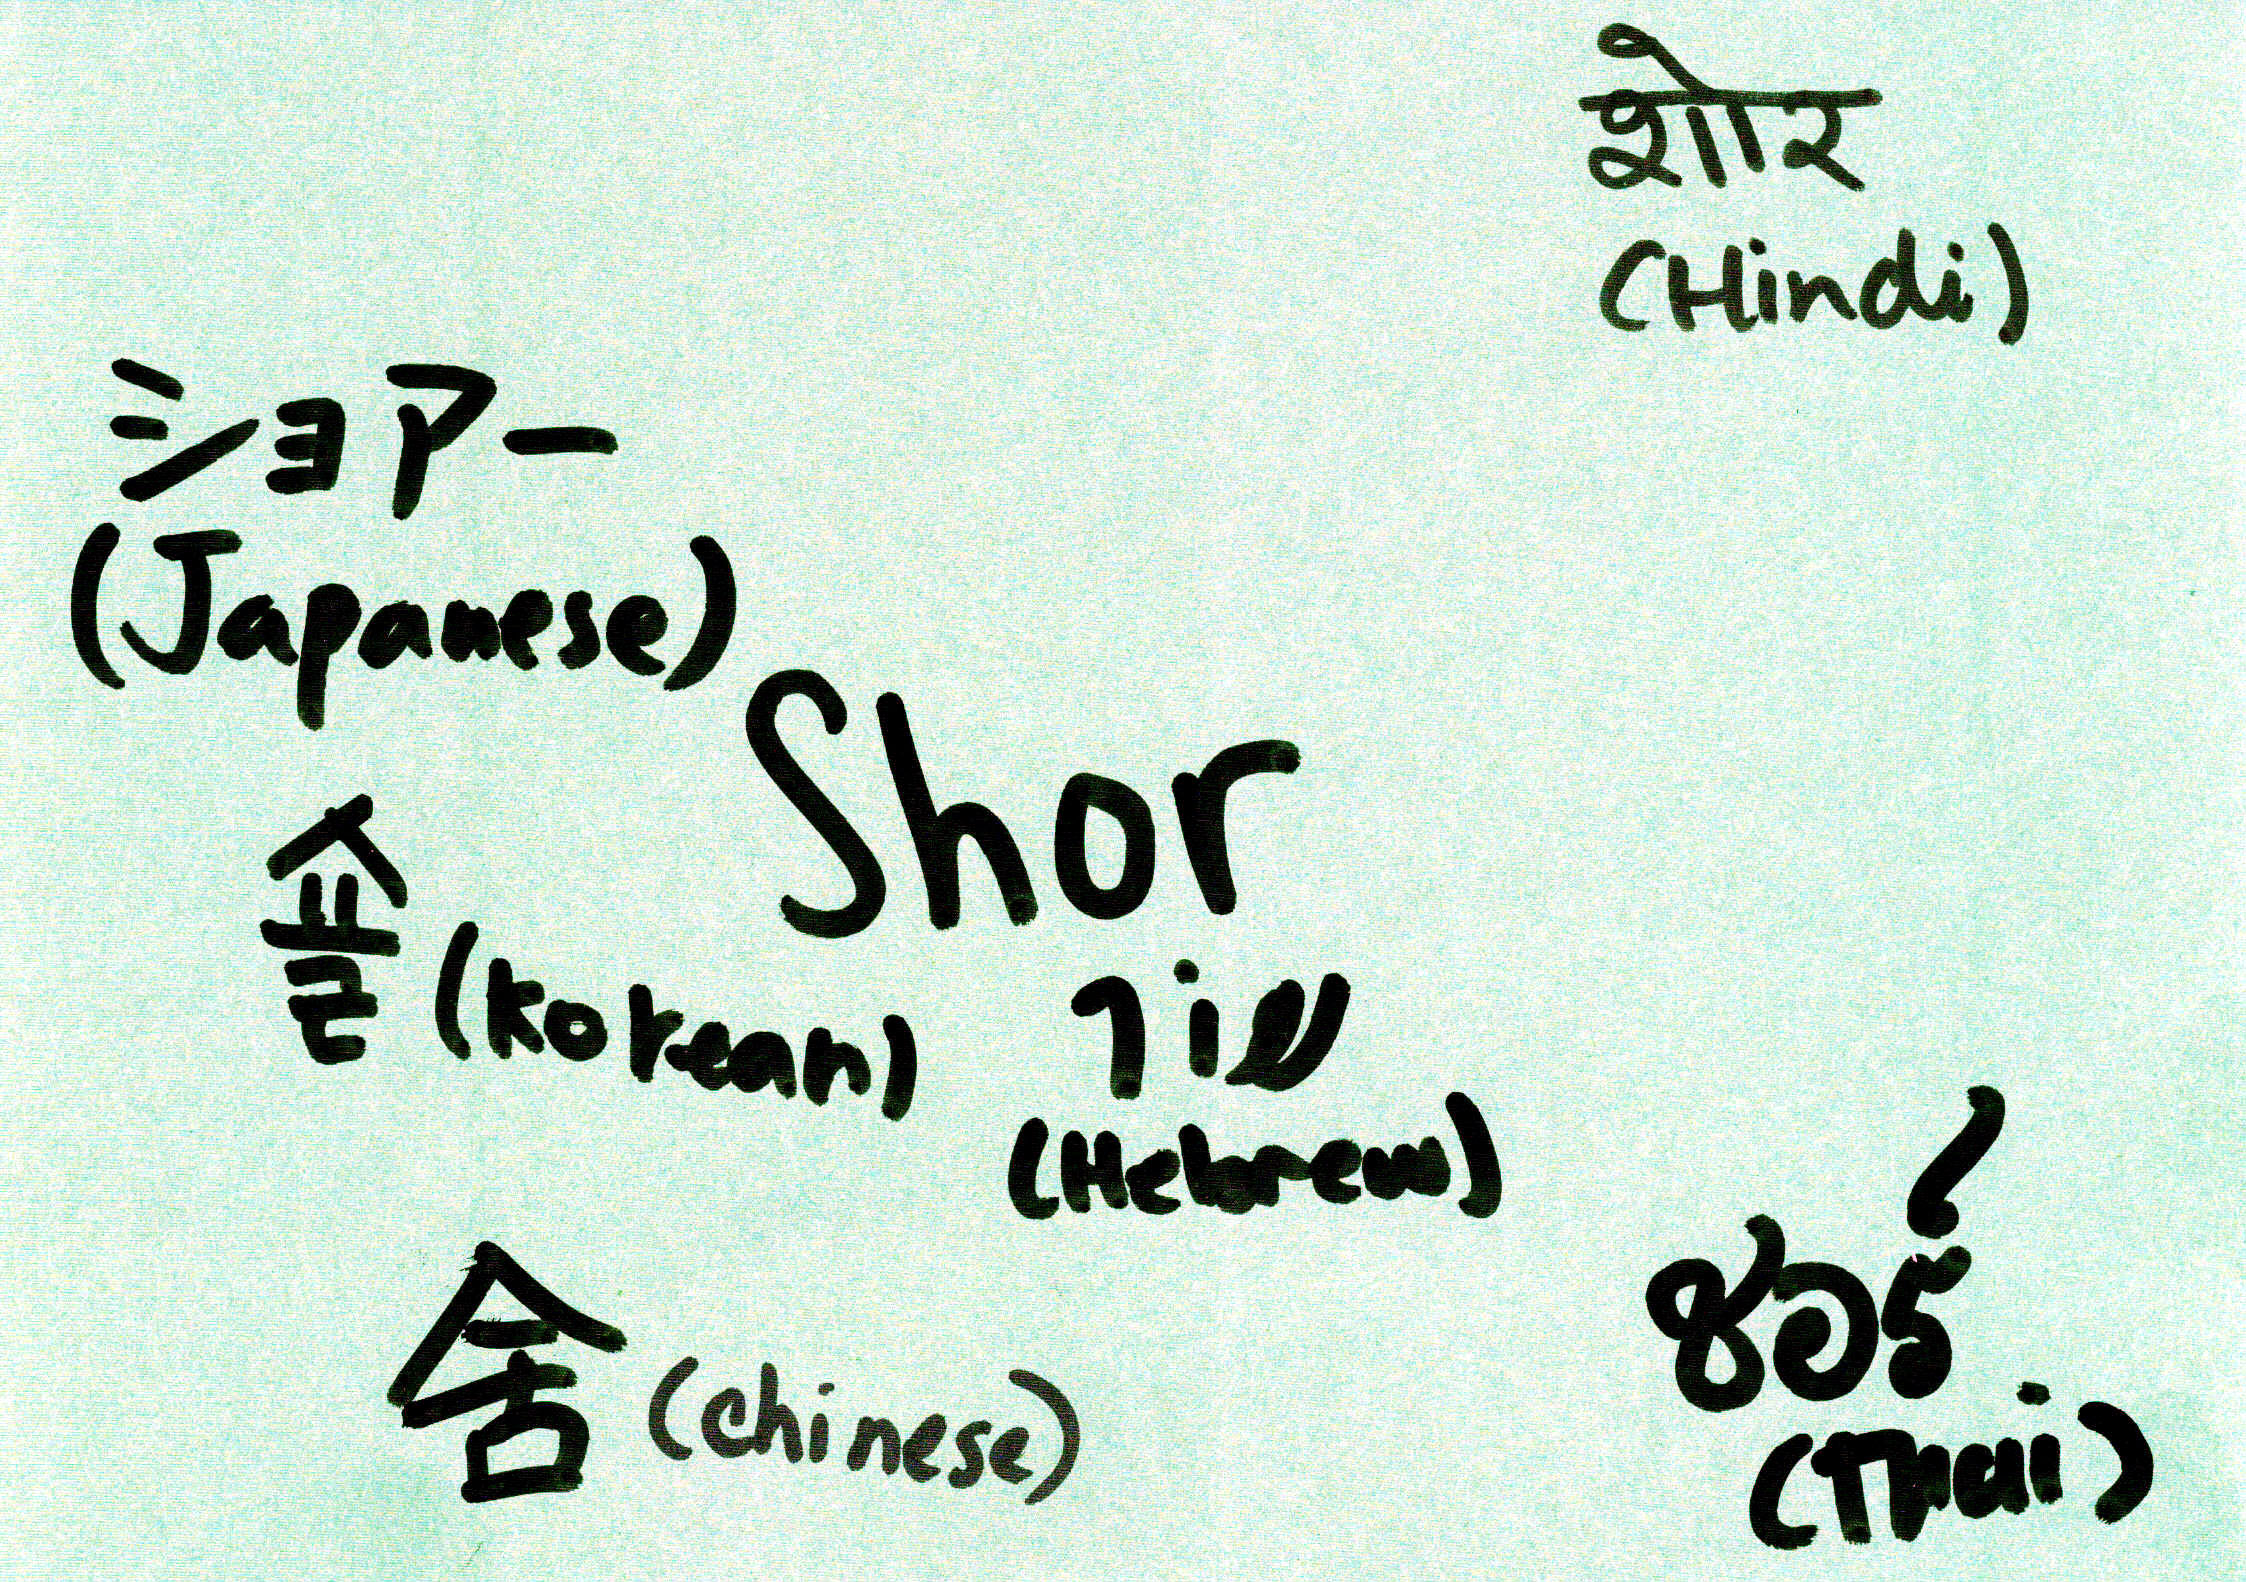 शोर
(Hindi)
ショアー
(Japanese)
Shor
숄 (Korean)
שוֹר
(Hebrew)
ชอร์
(Thai)
舍 (Chinese)